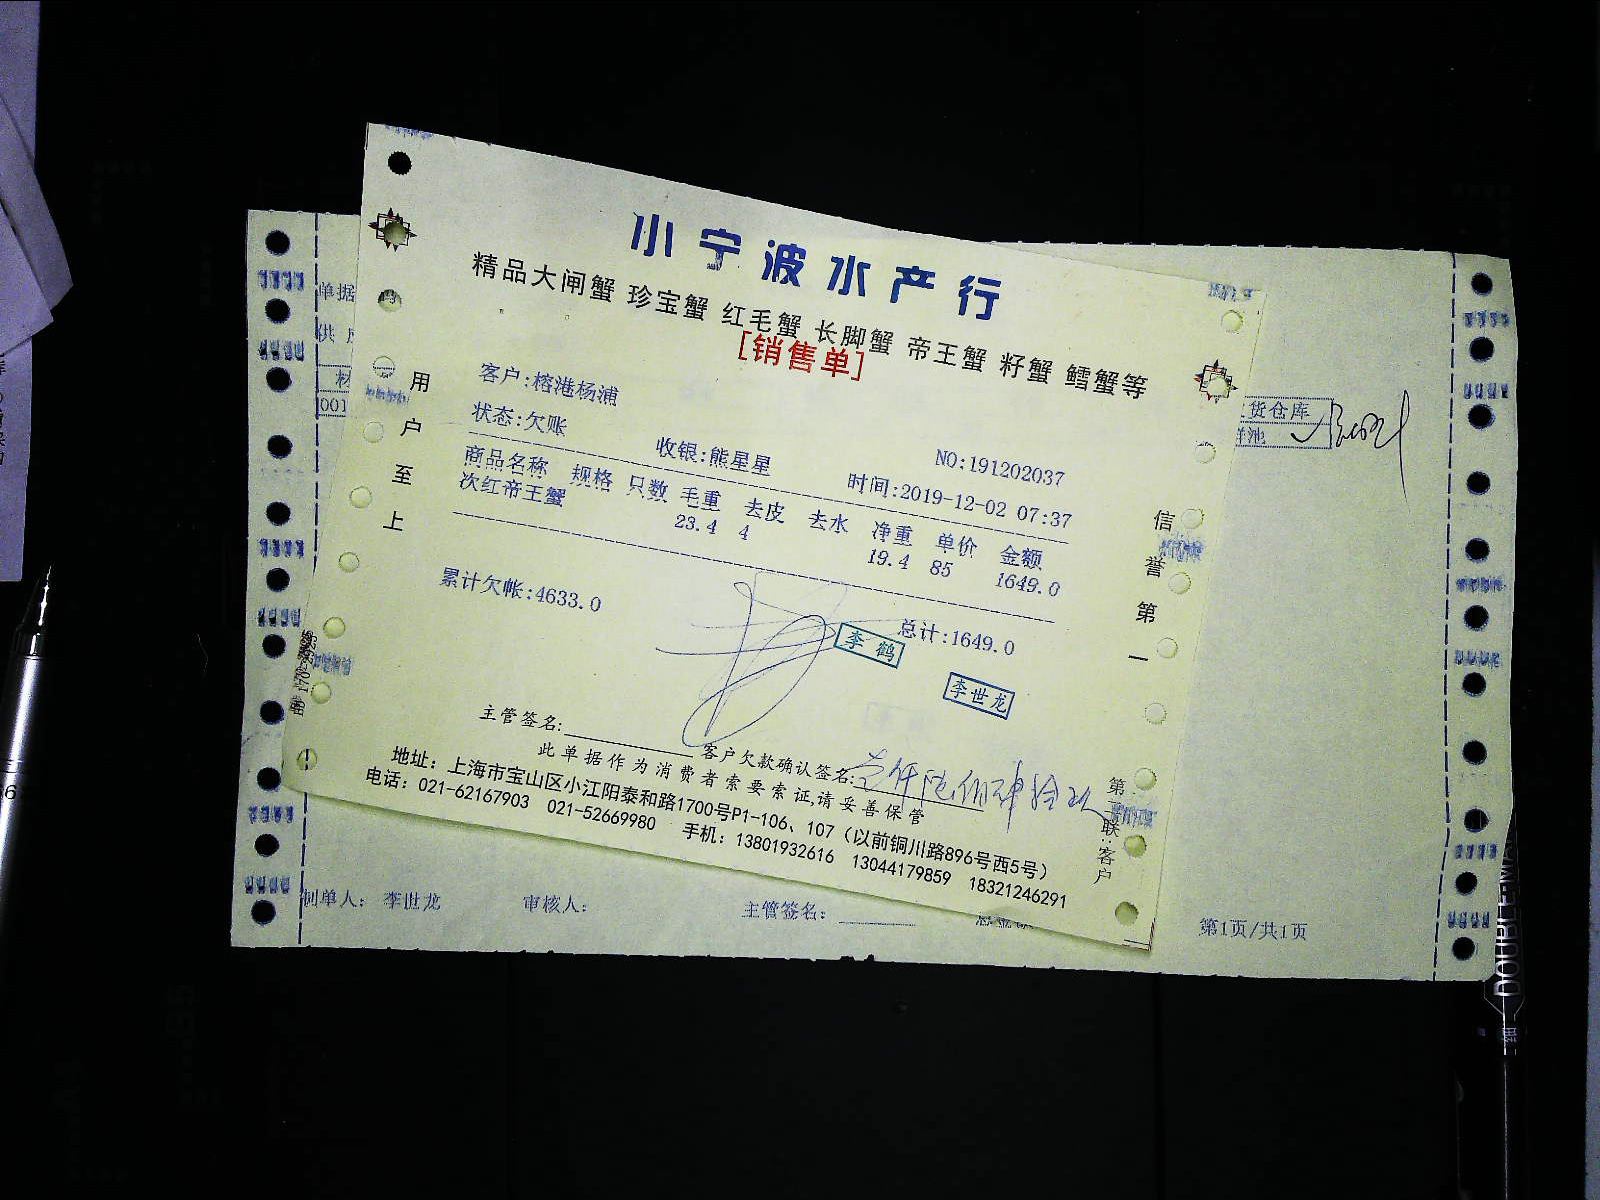 小宁波水产行
精品大闸蟹 珍宝蟹 红毛蟹 长脚蟹 帝王蟹 籽蟹 鳕蟹等
[销售单]
客户:榕港杨浦
状态:欠账 收银:熊星星 NO:191202037
时间:2019-12-02 07:37
商品名称 规格 只数 毛重 去皮 去水 净重 单价 金额
次红帝王蟹 23.4 4 19.4 85 1649.0
累计欠帐:4633.0 总计:1649.0
李鹤
李世龙
主管签名: 客户欠款确认签名: 壹仟陆佰肆拾玖
此单据作为消费者索要索证,请妥善保管
地址：上海市宝山区小江阳泰和路1700号P1-106、107（以前铜川路896号西5号）
电话：021-62167903 021-52669980 手机：13801932616 13044179859 18321246291
用户至上
信誉第一
第二联:客户
单据
供
001
货仓库
池
制单人: 李世龙 审核人: 主管签名: 第1页/共1页
DOUBLE